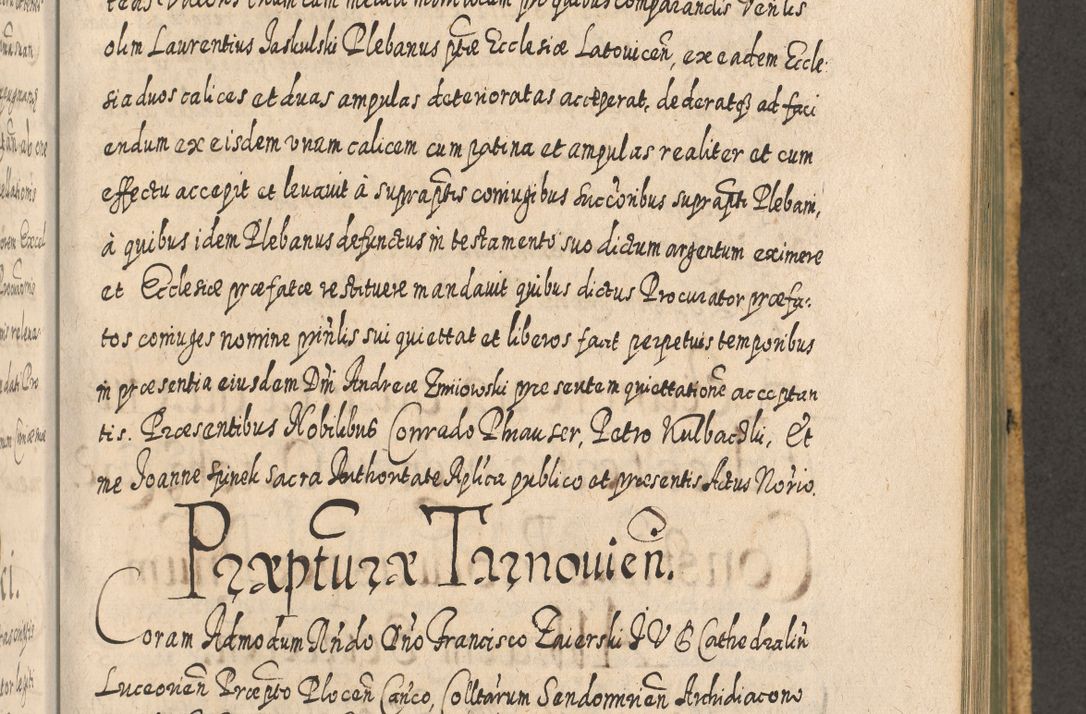 olim Laurentius Jaskulski Plebanus ptæ Ecclesiæ Latovicen̄, ex eadem Eccle
sia duos calices et duas ampulas deterioratas acceperat, dederatq3 ad faci
endum ex eisdem vnam calicem cum patina et ampulas realiter et cum
effectu accepit et leuauit à supraptis coniugibus succ̄oribus suprapti Plebani,
à quibus idem Plebanus defunctus in testamento suo dictum argentum eximere
et Ecclesiæ præfatæ restituere mandauit quibus dictus Procurator præfa:
tos coniuges nomine prin̄lis sui quiettat et liberos facit perpetuis temporibus
in præsentia eiusdem Dn̄i Andreæ Zmiowski præsentem quiettation̄e acceptan
tis. Præsentibus Nobilibus Conrado Phauser, Petro Kulbacski, Et
me Joanne Spinek Sacra Authoritate Aplica publico et præsentis Actus No'rio.
Præptūræ Tarnouien̄.
Coram Admodum Rn̄do Dn̄o Francisco Zaierski J V D Cathedralin̄
Luceorien̄ Præpto Plocen̄ Can'co, Colltarum Sendomirien̄ Archidiacono